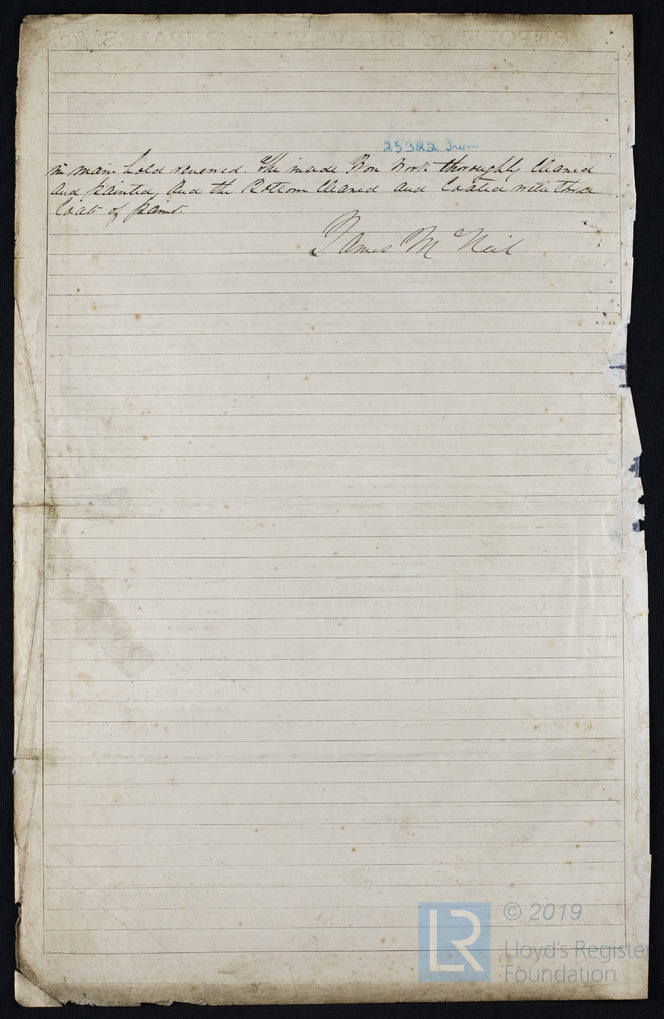 25322 Iron
in main hold renewed. The inside Iron Work thoroughly Cleaned
and painted, and the Bottom Cleaned and Coated with three
Coats of paint.
James McNeil
© 2019
LR
Lloyd's Register
Foundation